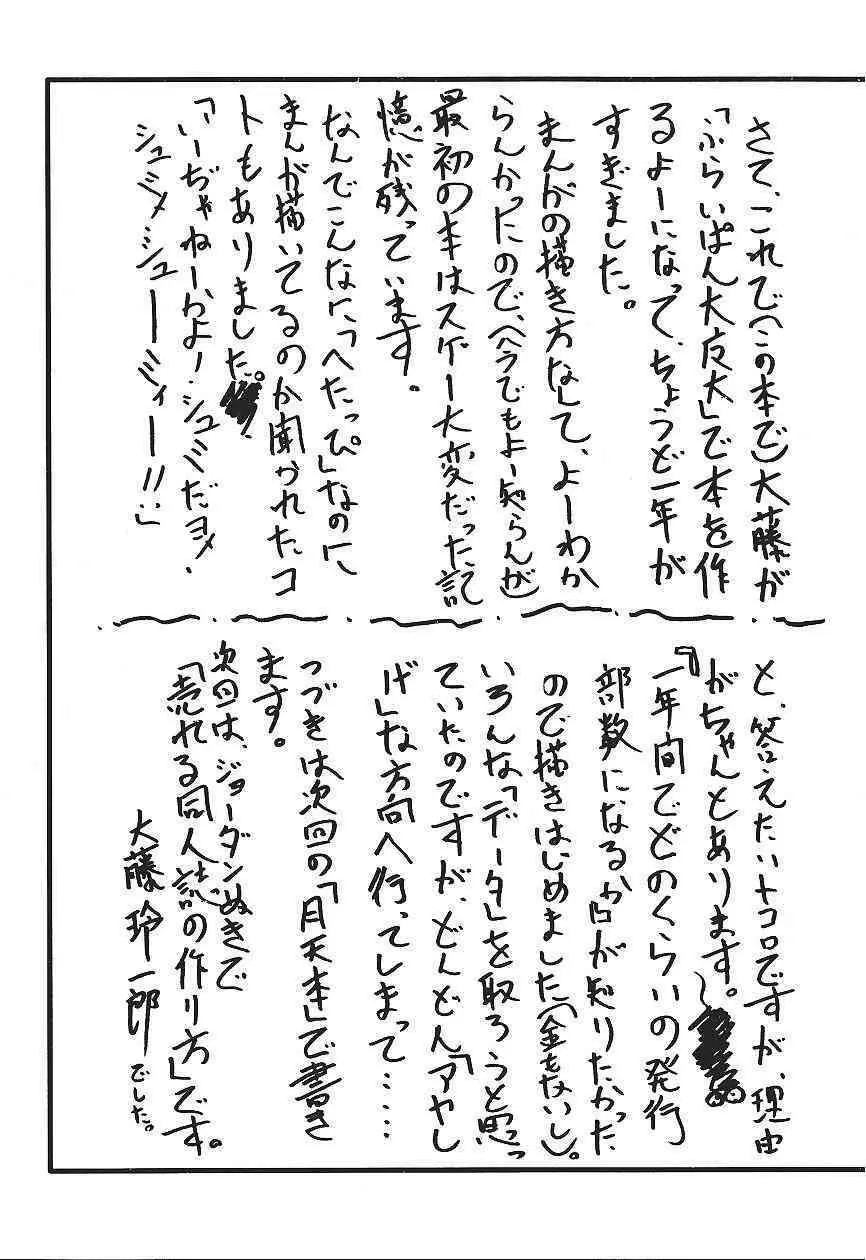 さて、これで(この本で)大藤が
「ふらいぱん大文夫」で本を作
るよーになって、ちょうど一年が
すぎました。
まんがの描き方なして、よーわか
らんかったので、(今でもよー知らんが)
最初の本はスゲー大変だった記
憶が残っています。
なんでこんなに「へたっぴ」なのに
まんが描いてるのか聞かれたコ
トもありました。
「いーぢゃねーかよー・シュミだヨ・
シュミ・シューミィー!!」
と、答えたいトコロですが、理由
がちゃんとあります。
『一年間でどのくらいの発行
部数になるか』が知りたかった
ので描きはじめました(金もないし)。
いろんな「データ」を取ろうと思っ
ていたのですが、どんどん「アヤし
げ」な方向へ行ってしまって……
つづきは次回の「月天本」で書き
ます。
次回は、ジョーダンぬきで
「売れる同人誌の作り方」です。
大藤玲一郎でした。